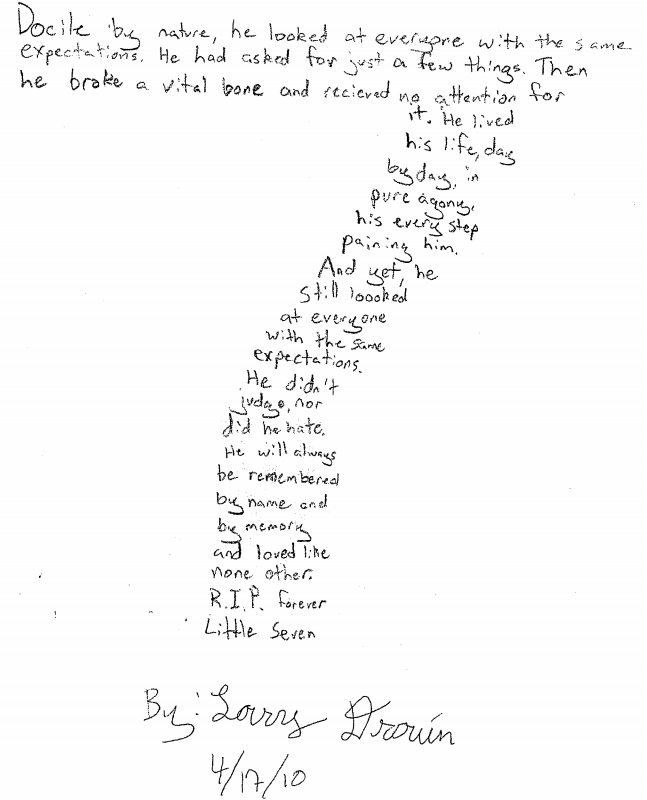 Docile by nature, he looked at everyone with the same
expectations. He had asked for just a few things. Then
he broke a vital bone and recieved no attention for
it. He lived
his life, day
by day, in
pure agony,
his every step
paining him.
And yet, he
still loooked
at everyone
with the same
expectations.
He didn't
judge, nor
did he hate.
He will always
be remembered
by name and
by memory
and loved like
none other.
R.I.P. forever
Little Seven
By: Larry Drouin
4/17/10